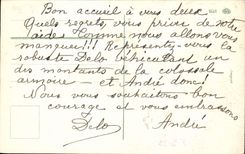 Bon accueil à vous deux
Quels regrets, vous priver de votre
aide! Comme nous allons vous
manquer!!! Représentez-vous la
robuste Delo véhiculant un
des montants de la colossale
armoire — et André donc!
Nous vous souhaitons bon
courage et vous embrassons
Delo André